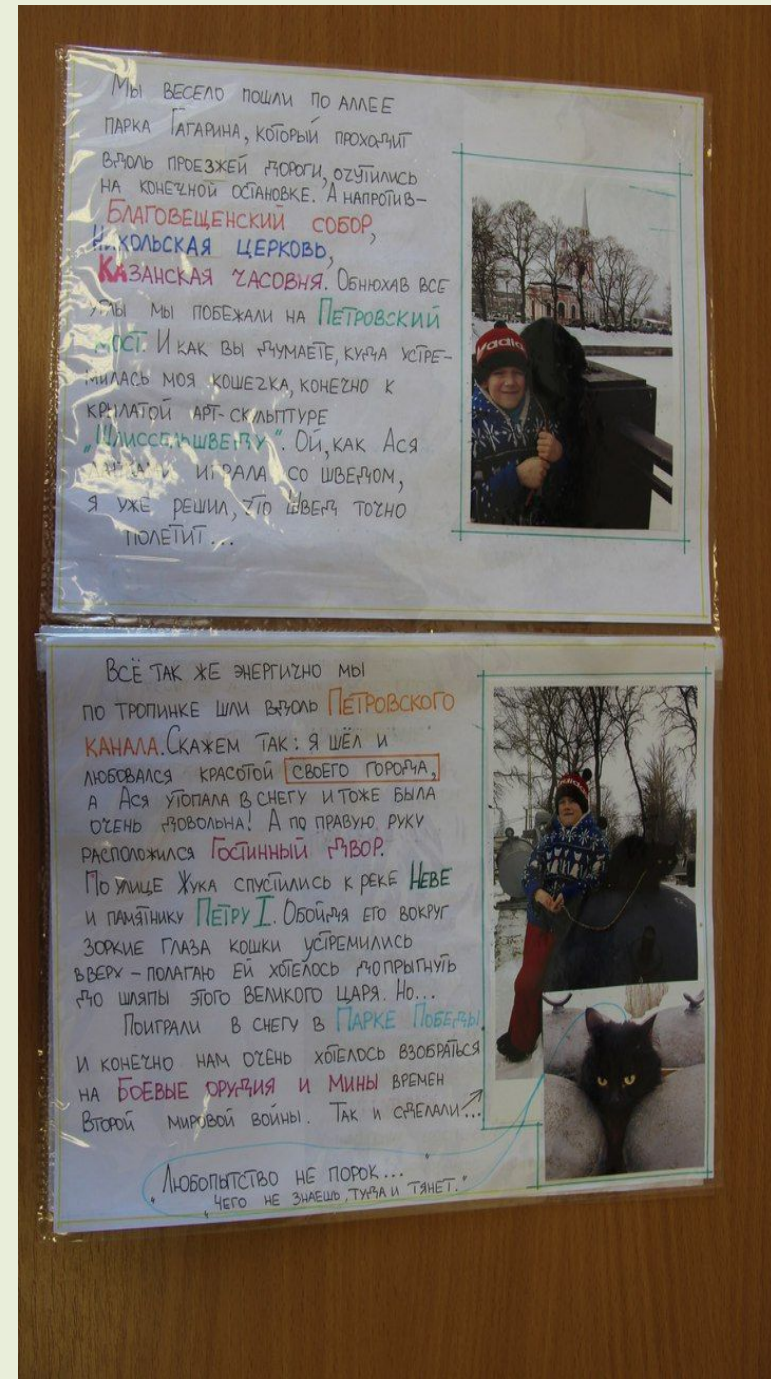 Мы весело пошли по аллее
парка Гагарина, который проходит
вдоль проезжей дороги, очутились
на конечной остановке. А напротив-
Благовещенский собор,
Никольская церковь,
Казанская часовня. Обнюхав все
углы мы побежали на Петровский
мост. И как вы думаете, куда устре-
милась моя кошечка, конечно к
крылатой арт-скульптуре
"Шлиссельшведу". Ой, как Ася
лапами играла со шведом,
я уже решил, что швед точно
полетит...
Всё так же энергично мы
по тропинке шли вдоль Петровского
канала. Скажем так: я шёл и
любовался красотой своего города,
а Ася утопала в снегу и тоже была
очень довольна! А по правую руку
расположился Гостинный двор.
По улице Жука спустились к реке Неве
и памятнику Петру I. Обойдя его вокруг
зоркие глаза кошки устремились
вверх - полагаю ей хотелось допрыгнуть
до шляпы этого великого царя. Но...
Поиграли в снегу в Парке Победы
и конечно нам очень хотелось взобраться
на боевые орудия и мины времен
Второй мировой войны. Так и сделали...
"Любопытство не порок..."
"Чего не знаешь, туда и тянет."